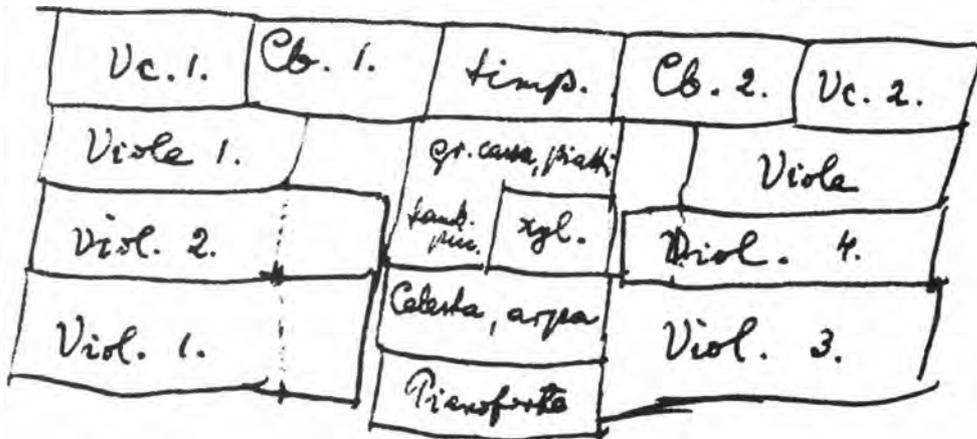 Vc. 1. Cb. 1. timp. Cb. 2. Vc. 2.
Viole 1. gr. cassa, piatti Viole
Viol. 2. tamb. picc. xyl. Viol. 4.
Viol. 1. Celesta, arpa Viol. 3.
Pianoforte